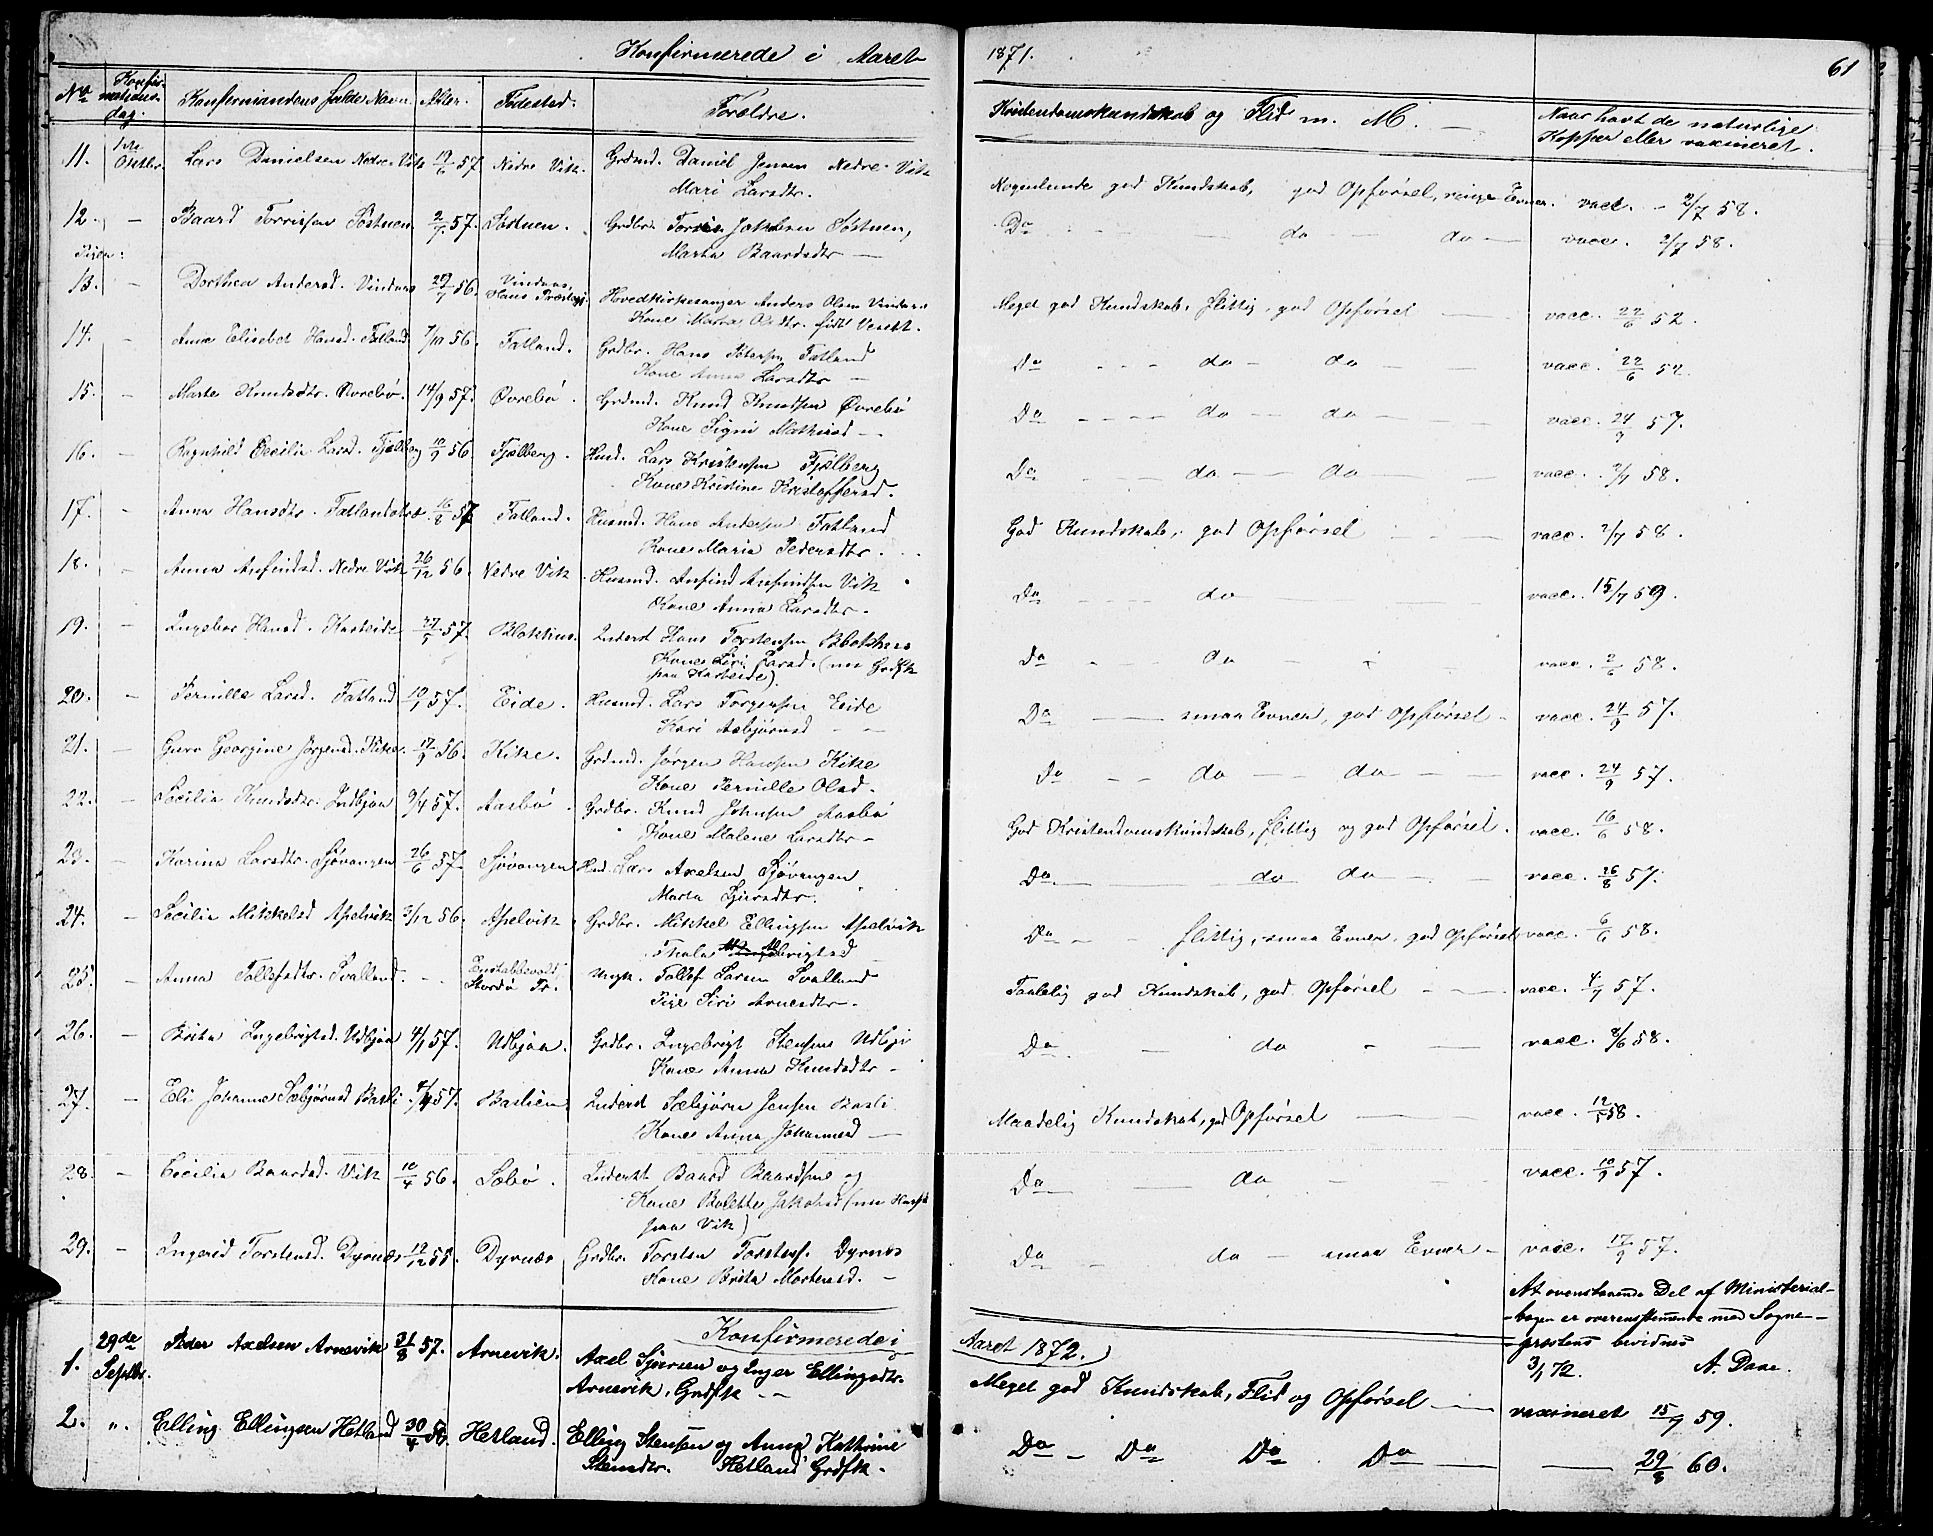 Konfirmerede i Aaret 1871. 61
No Konfirmations-dag. Konfirmandens fulde Navn. Alder. Fødested. Forældre. Kristendomskundskab og Flid m. M. Naar havt de naturlige Kopper eller vaxineret.
11. 1ste Oktbr. Lars Danielsen Nedre-Vik 19/6 57 Nedre Vik. Grdmd. Daniel Jensen Nedre-Vik
Mari Larsdtr. Nogenlunde god Kundskab, god Opførsel, ringe Evner. vacc. - 2/7 58.
12. — Baard Torrissen Søstuen 2/7 57. Søstuen. Grdbr. Torris Jakobsen Søstuen,
Marta Baardsdtr — Do do do vacc. 2/7 58.
Piger:
13. — Dorthea Andersd. Vindnes 29/7 56. Vindnes, Hans Præstegj. Hovedkirkesanger Anders Olsen Vindnes
Kone Marta Olsdtr. født Meget god Kundskab, flittig, god Opførsel vacc. 22/6 52.
14. — Anna Elisebet Hansd. Fatland 7/10 56. Fatland. Grdbr. Hans Petersen Fatland
Kone Anna Larsdtr — Do do do vacc. 22/6 52.
15. — Marta Knudsdtr. Øvrebø. 14/9 57. Øvrebø. Grdmd. Knud Knudsen Øvrebø
Kone Signi Mathisd — Do do do vacc. 24/9 57.
16. — Ragnhild Cecilia Larsd. Fjelberg 10/9 56. Fjelberg. Husmd. Lars Kristensen Fjelberg
Kone Kristine Kristoffersd. Do do do vacc. 2/7 58.
17. — Anna Hansdtr. Fatland 16/8 57 Fatland. Husmd. Hans Andersen Fatland
Kone Maria Pedersdtr. God Kundskab, god Opførsel vacc. 2/7 58.
18. — Anna Anfindsd. Nedre Vik 26/12 56. Nedre Vik Husmd. Anfind Anfindsen Vik
Kone Anna Larsdtr. Do do vacc. 15/7 59.
19. — Ingebor Hansd. Karteide 27/5 57. Blokhus. Inderst Hans Torstensen Blokhus
Kone Siri Larsd. (nu Grdfk
paa Karteide) Do do vacc. 2/6 58.
20. — Pernille Larsd. Fatland 10/1 57. Eide. Husmd. Lars Torgersen Eide
Kari Asbjørnsd — Do smaa Evner, god Opførsel vacc. 24/9 57.
21. — Guro Georgine Jørgensd. Kike. 17/9 56. Kike. Grdmd. Jørgen Hansen Kike
Kone Pernille Olsd. Do do do vacc. 24/9 57.
22. — Secilia Knudsdtr. Indbjoa 9/4 57. Aasbø. Grdbr. Knud Johnsen Aasbø
Kone Malene Larsdtr — God Kristendomskundskab, flittig og god Opførsel. vacc. 16/6 58.
23. — Karina Larsdtr. Sjøvangen 26/6 57. Sjøvangen Husd. Lars Axelsen Sjøvangen
Marta Sjursdtr. Do do do vacc. 26/8 57.
24. — Secilia Mikkelsd Apelvik 3/12 56. Apelvik Grdbr. Mikkel Ellingsen Apelvik
Thala brigtsd Do flittig, smaa Evner, god Opførsel vacc. 6/6 58.
25. — Anna Tollefsdtr. Svalland. — Stordø Pr. Ungk. Tollef Larsen Svalland
Pige Siri Arnesdtr. Taalelig god Kundskab, god Opførsel vacc. 4/7 57.
26. — Brita Ingebrigtsd. Udbjoa 4/1 57. Udbjoa. Grdbr. Ingebrigt Stensen Udbjo
Kone Anna Knudsdtr — Do do vacc. 8/6 58.
27. — Eli Johanne Sæbjørnsd Basli 57. Baslien Inderst Sæbjørn Jensen Basli
Kone Anna Johannesd — Maadelig Kundskab, god Opførsel vacc. 12/5 58.
28. — Cecilia Baardsd. Vik 10/4 56. Søbø. Inderst Baard Baardsen og
Kone Bolette Jakobsd (nu Husfk
paa Vik) Do do vacc. 10/9 57.
29. — Ingerid Torstensd. Dyrnæs 19/12 55. Dyrnæs Grdbr. Torsten Torstens. Dyrnes
Kone Brita Mortensd. — Do do — smaa Evner — vacc. 17/9 57.
At ovenstaaende Del af Ministerial-
-bogen er overensstemmende med Sogne-
-prestens bevidnes
3/1 72. A. Daae.
Konfirmerede i Aaret 1872.
1. 29de Septbr. Peder Axelsen Arnevik 31/8 57. Arnevik. Axel Sjursen og Inger Ellingsdtr.
Arnevik, Grdfk — Meget god Kundskab, Flid og Opførsel — vaxineret 15/9 59.
2. „ Elling Ellingsen Hetland 30/4 58 Hetland. Elling Stensen og Anna Kathrine
Stensdtr. Hetland Grdfk. Do — Do Do Do — 29/8 60.